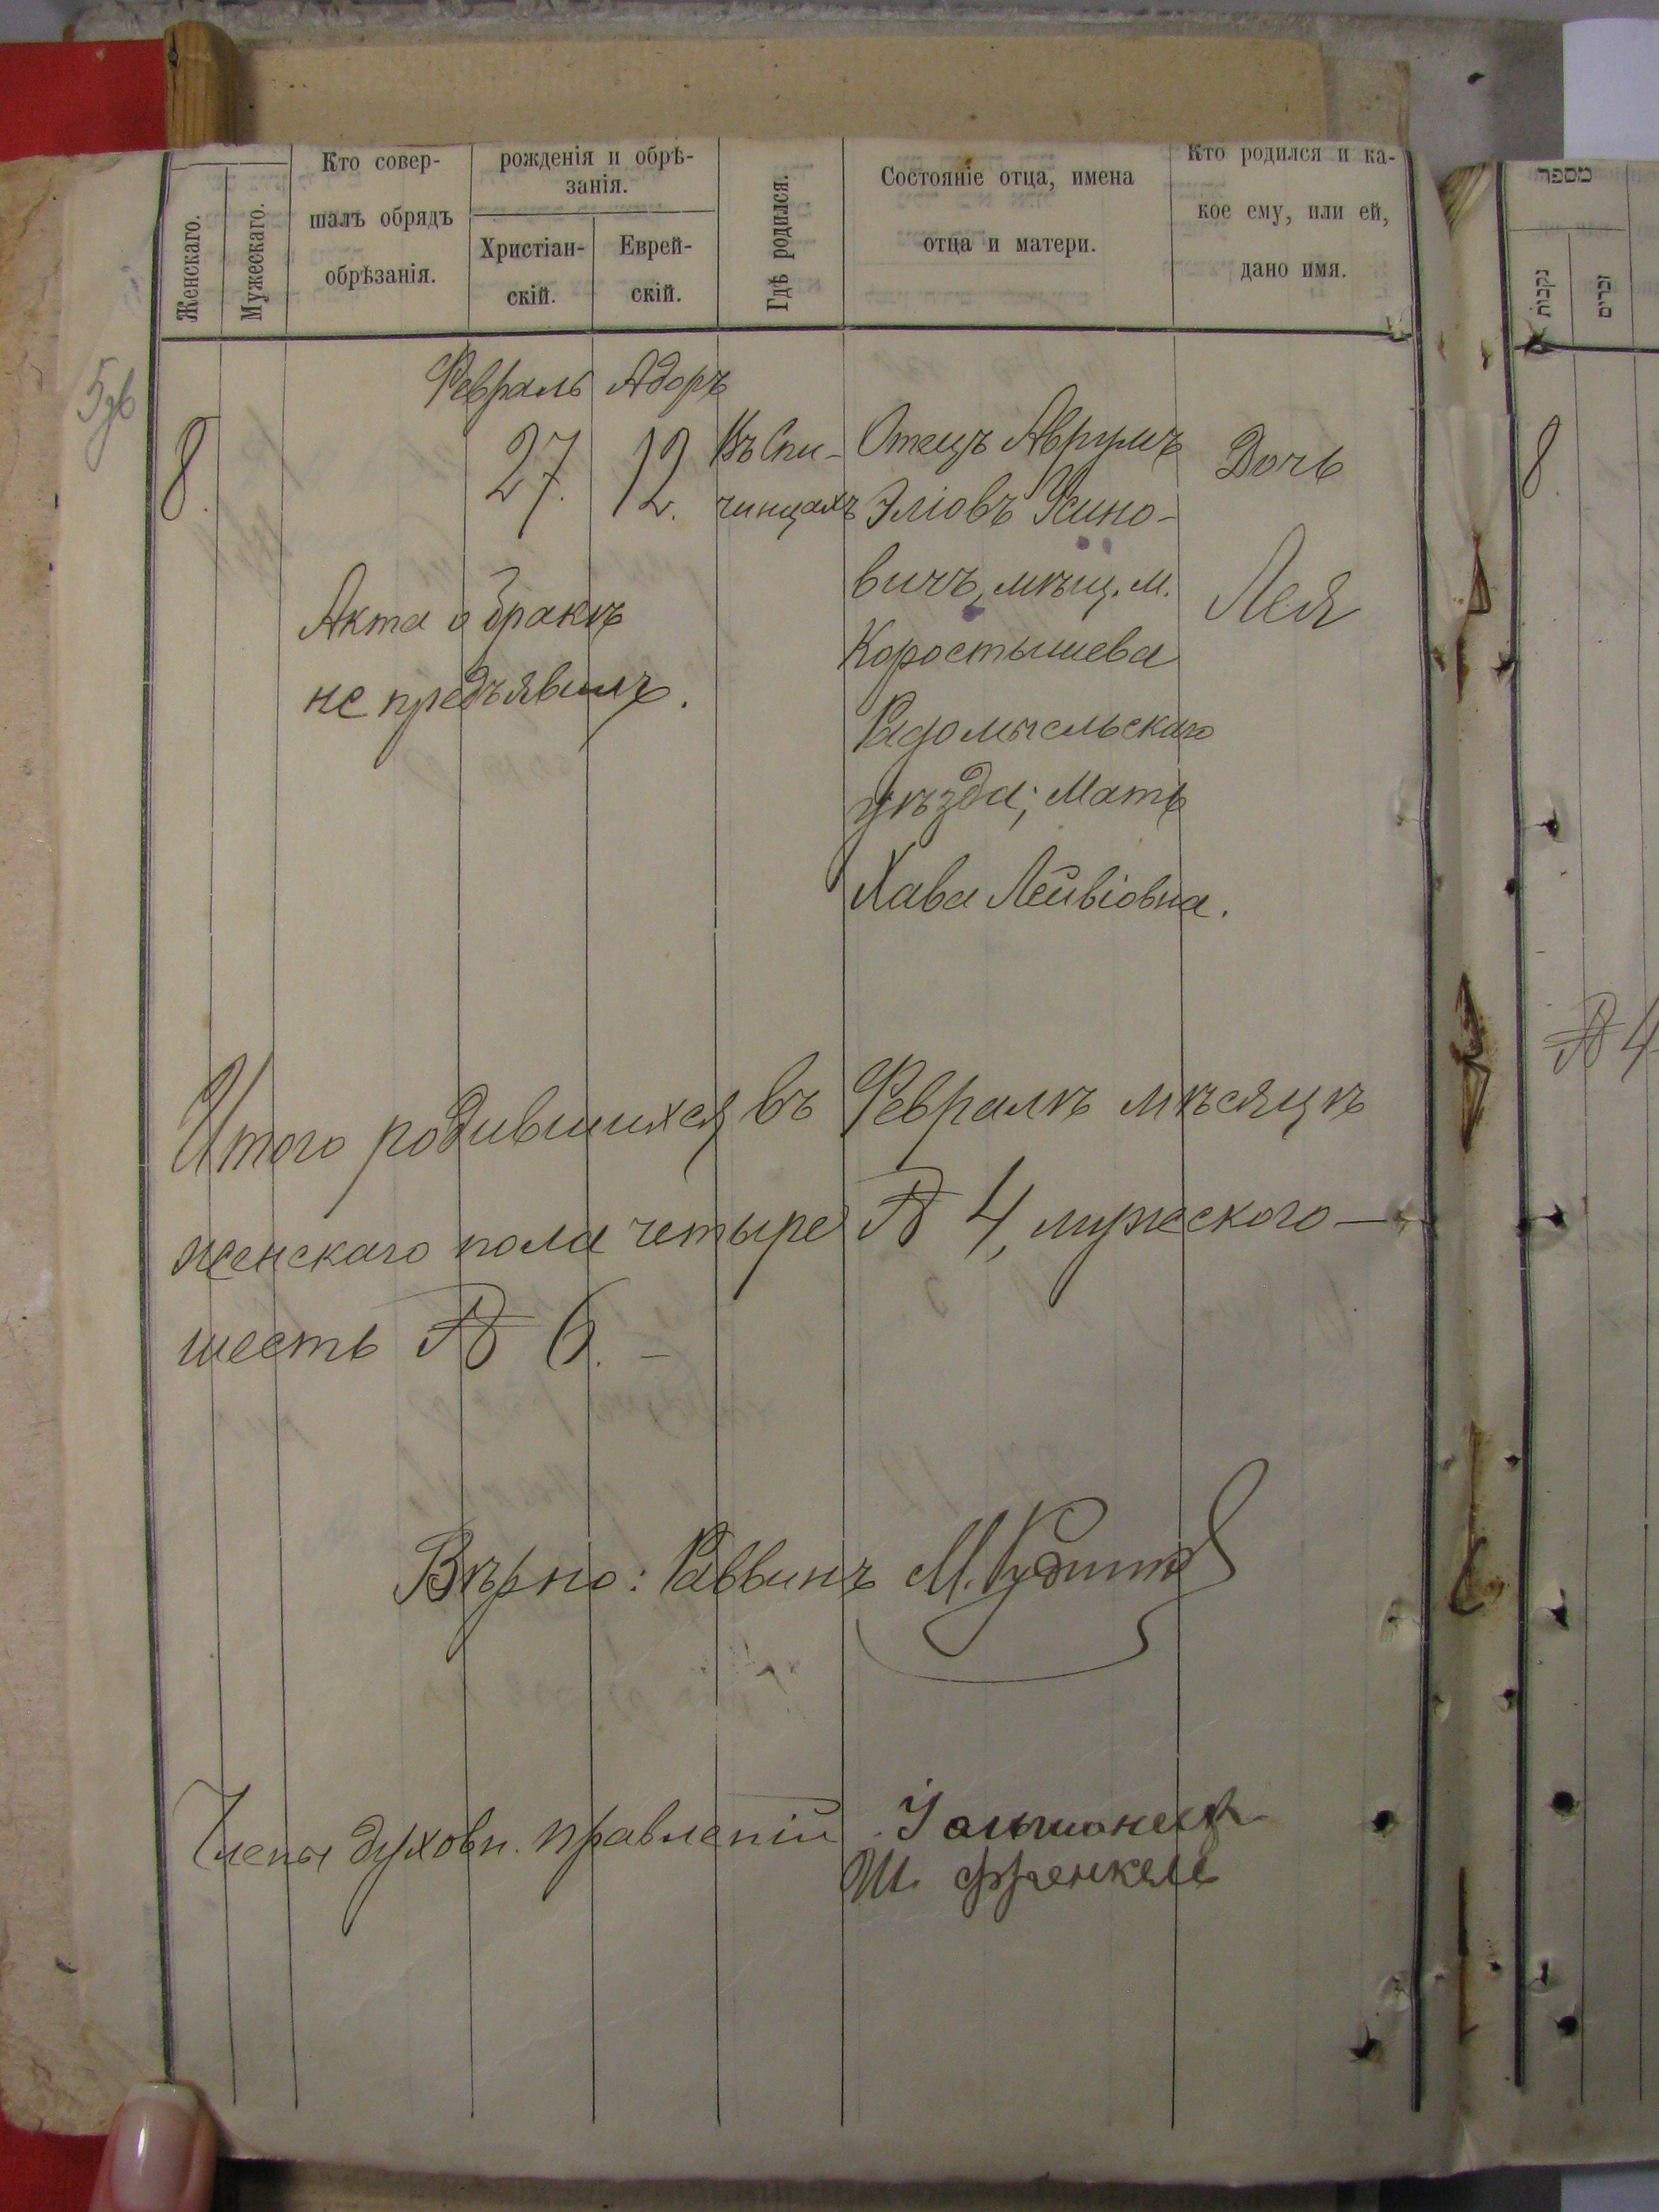 Женскаго.
Мужескаго.
Кто совер-
шалъ обрядъ
обрѣзанія.
рожденія и обрѣ-
занія.
Христіан-
скій.
Еврей-
скій.
Гдѣ родился.
Состояніе отца, имена
отца и матери.
Кто родился и ка-
кое ему, или ей,
дано имя.
Февраль Адоръ
8.
27.
12.
Въ Спи-
чинцахъ
Отецъ Аврумъ
Эліовъ
вичъ, мѣщ. м.
Коростышева
Радомысльскаго
уѣзда; Мать
Хава Лейвіовна.
Дочь
Лея
Акта о бракѣ
не предъявилъ.
Итого родившихся въ Февралѣ мѣсяцѣ
женскаго пола четыре № 4, мужеского —
шесть № 6. —
Вѣрно: Раввинъ М.
Члены духовн. правленій
Ш. Френкель
מספר
נקבות
זכרים
8
№ 4